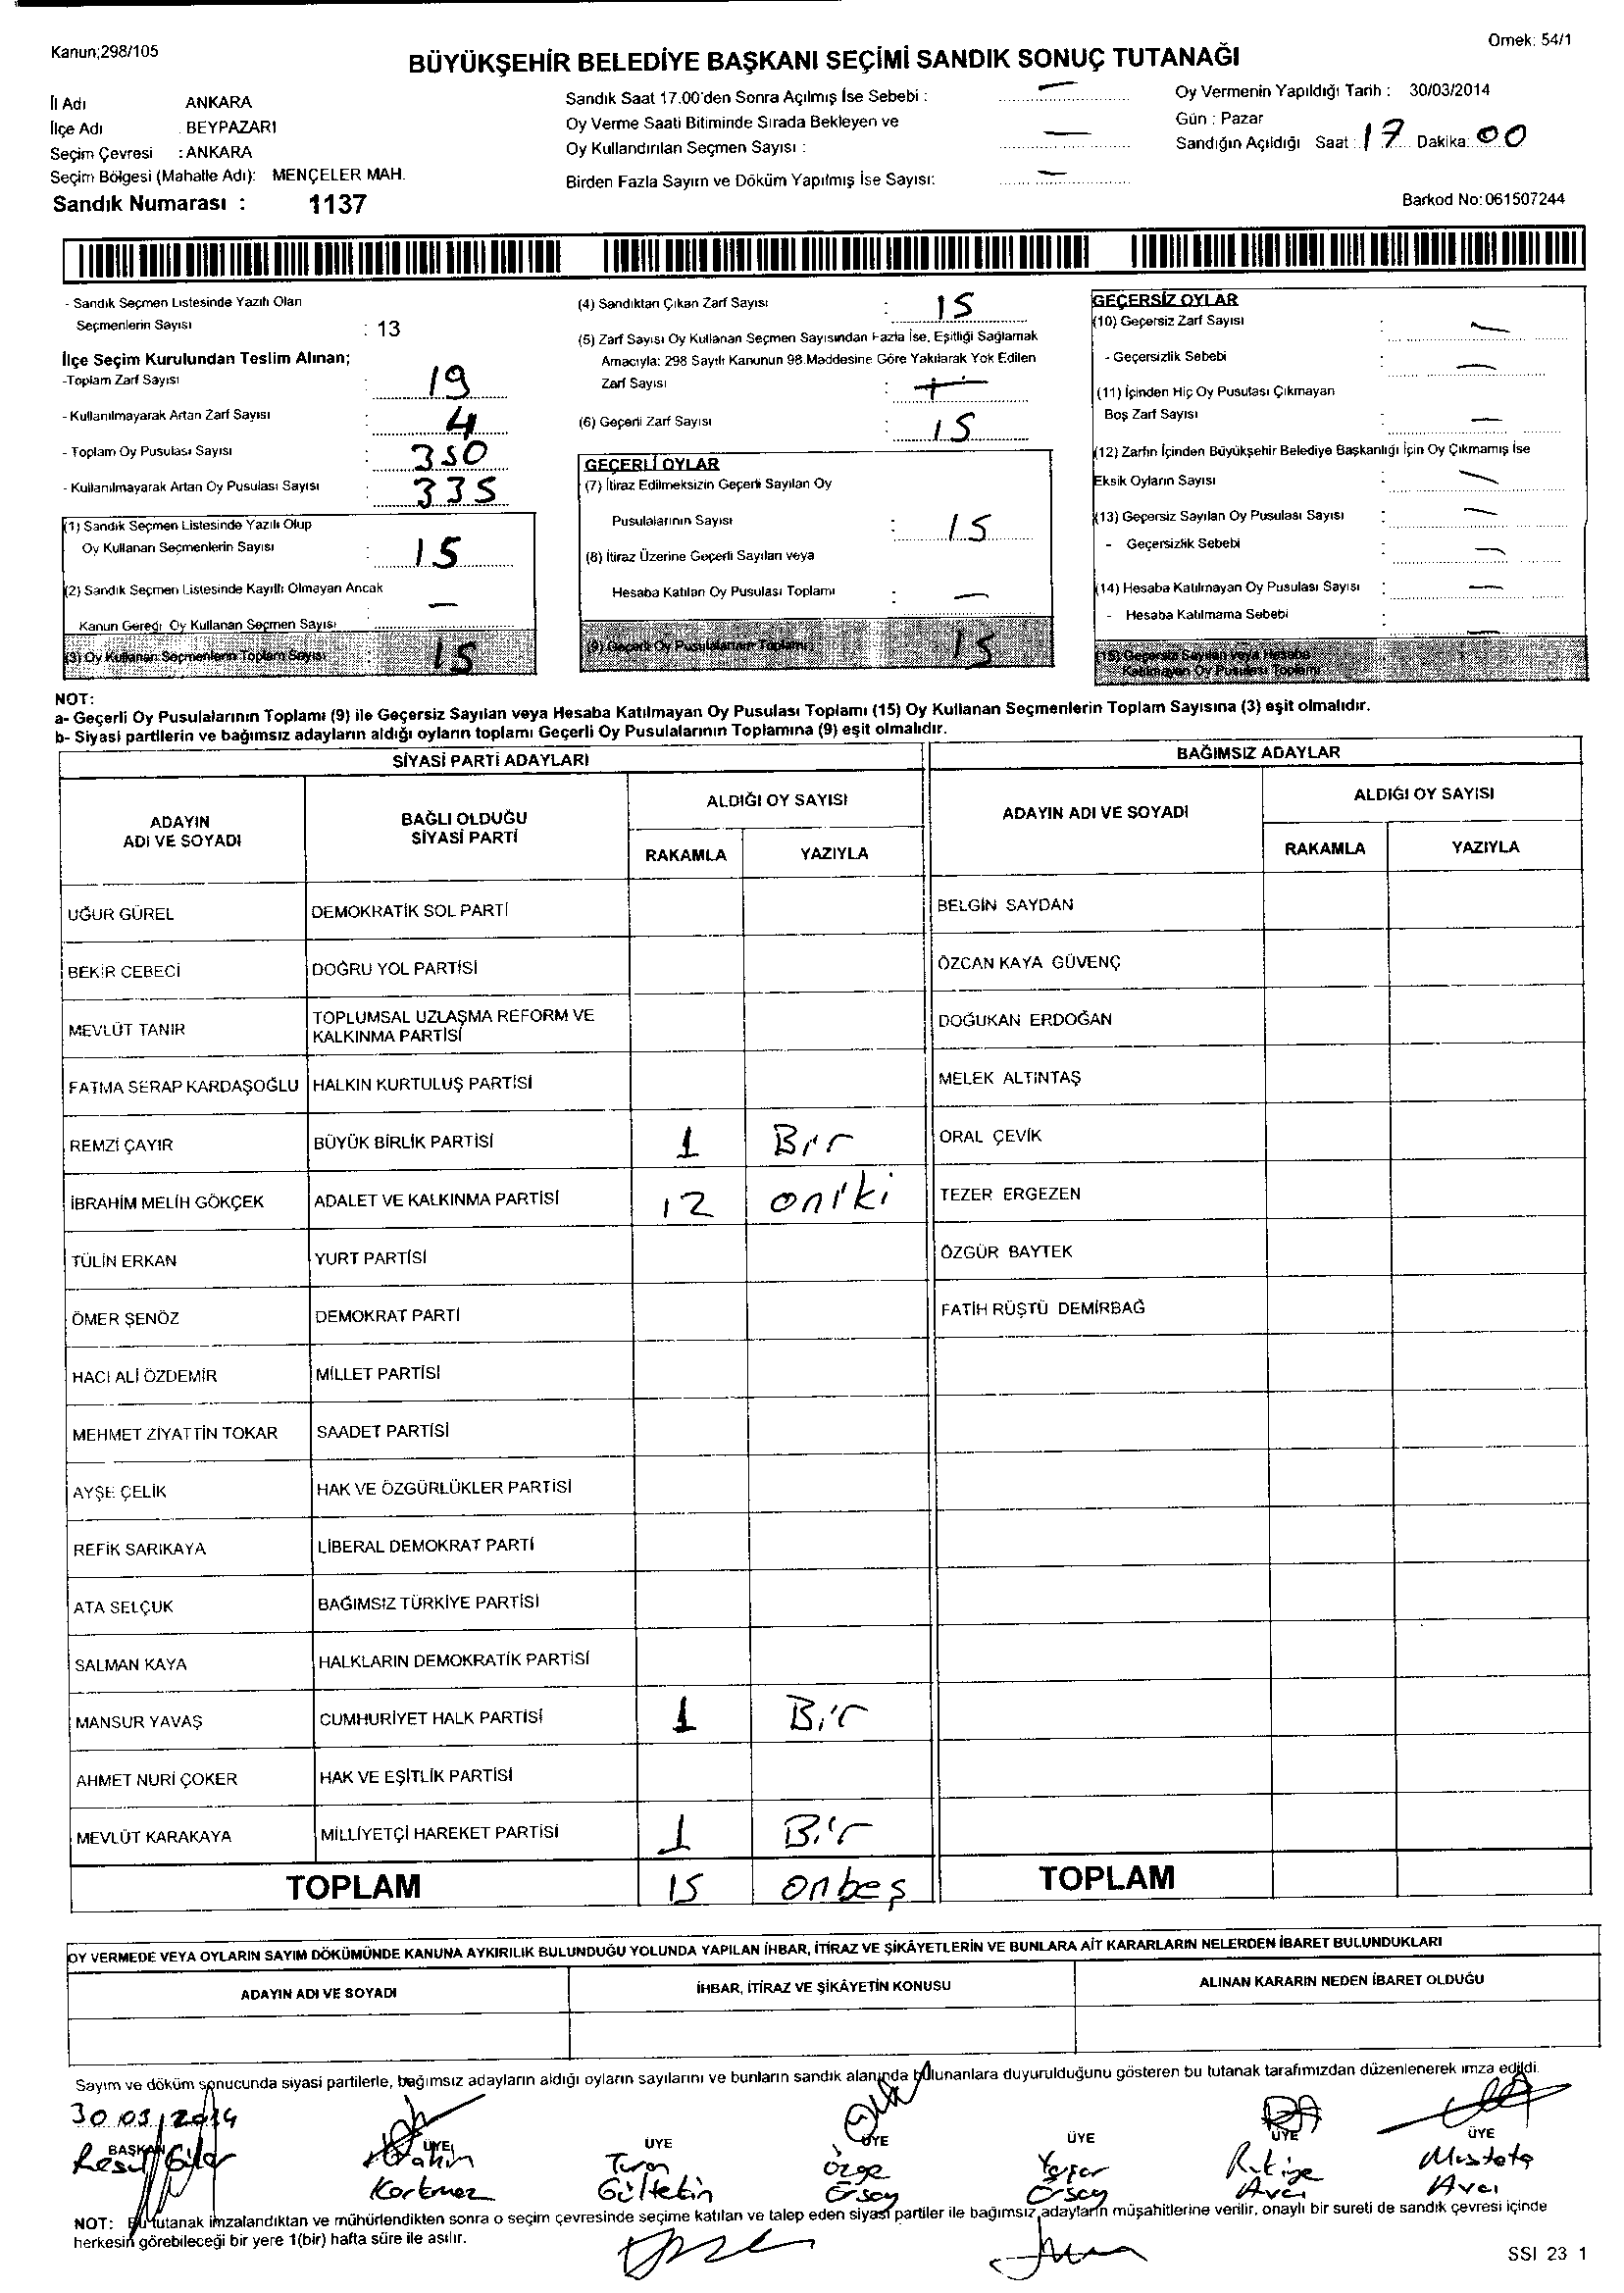 Kanun;298/105
Ornek: 54/1
BÜYÜKŞEHİR BELEDİYE BAŞKANI SEÇİMİ SANDIK SONUÇ TUTANAĞI
İl Adı ANKARA
İlçe Adı . BEYPAZARI
Seçim Çevresi : ANKARA
Seçim Bölgesi (Mahalle Adı): MENÇELER MAH.
Sandık Numarası : 1137
Sandık Saat 17.00'den Sonra Açılmış İse Sebebi : —
Oy Verme Saati Bitiminde Sırada Bekleyen ve
Oy Kullandırılan Seçmen Sayısı : —
Birden Fazla Sayım ve Döküm Yapılmış İse Sayısı: —
Oy Vermenin Yapıldığı Tarih : 30/03/2014
Gün : Pazar
Sandığın Açıldığı Saat : 17 Dakika: 00
Barkod No: 061507244
- Sandık Seçmen Listesinde Yazılı Olan
Seçmenlerin Sayısı : 13
İlçe Seçim Kurulundan Teslim Alınan;
-Toplam Zarf Sayısı : 19
- Kullanılmayarak Artan Zarf Sayısı : 4
- Toplam Oy Pusulası Sayısı : 350
- Kullanılmayarak Artan Oy Pusulası Sayısı : 335
(1) Sandık Seçmen Listesinde Yazılı Olup
Oy Kullanan Seçmenlerin Sayısı : 15
(2) Sandık Seçmen Listesinde Kayıtlı Olmayan Ancak
Kanun Gereği Oy Kullanan Seçmen Sayısı —
(3) Oy Kullanan Seçmenlerin Toplam Sayısı : 15
(4) Sandıktan Çıkan Zarf Sayısı : 15
(5) Zarf Sayısı Oy Kullanan Seçmen Sayısından Fazla İse, Eşitliği Sağlamak
Amacıyla: 298 Sayılı Kanunun 98.Maddesine Göre Yakılarak Yok Edilen
Zarf Sayısı :
(6) Geçerli Zarf Sayısı : 15
GEÇERLİ OYLAR
(7) İtiraz Edilmeksizin Geçerli Sayılan Oy
Pusulalarının Sayısı : 15
(8) İtiraz Üzerine Geçerli Sayılan veya
Hesaba Katılan Oy Pusulası Toplamı : —
(9) Geçerli Oy Pusulalarının Toplamı 15
GEÇERSİZ OYLAR
(10) Geçersiz Zarf Sayısı : —
- Geçersizlik Sebebi : —
(11) İçinden Hiç Oy Pusulası Çıkmayan
Boş Zarf Sayısı : —
(12) Zarfın İçinden Büyükşehir Belediye Başkanlığı İçin Oy Çıkmamış İse
Eksik Oyların Sayısı : —
(13) Geçersiz Sayılan Oy Pusulası Sayısı : —
- Geçersizlik Sebebi : —
(14) Hesaba Katılmayan Oy Pusulası Sayısı : —
- Hesaba Katılmama Sebebi : —
(15) Geçersiz Sayılan veya Hesaba
Katılmayan Oy Pusulası Toplamı
NOT:
a- Geçerli Oy Pusulalarının Toplamı (9) ile Geçersiz Sayılan veya Hesaba Katılmayan Oy Pusulası Toplamı (15) Oy Kullanan Seçmenlerin Toplam Sayısına (3) eşit olmalıdır.
b- Siyasi partilerin ve bağımsız adayların aldığı oyların toplamı Geçerli Oy Pusulalarının Toplamına (9) eşit olmalıdır.
SİYASİ PARTİ ADAYLARI
ADAYIN ADI VE SOYADI BAĞLI OLDUĞU SİYASİ PARTİ ALDIĞI OY SAYISI
RAKAMLA YAZIYLA
UĞUR GÜREL DEMOKRATİK SOL PARTİ
BEKİR CEBECİ DOĞRU YOL PARTİSİ
MEVLÜT TANIR TOPLUMSAL UZLAŞMA REFORM VE KALKINMA PARTİSİ
FATMA SERAP KARDAŞOĞLU HALKIN KURTULUŞ PARTİSİ
REMZİ ÇAYIR BÜYÜK BİRLİK PARTİSİ 1 Bir
İBRAHİM MELİH GÖKÇEK ADALET VE KALKINMA PARTİSİ 12 oniki
TÜLİN ERKAN YURT PARTİSİ
ÖMER ŞENÖZ DEMOKRAT PARTİ
HACI ALİ ÖZDEMİR MİLLET PARTİSİ
MEHMET ZİYATTİN TOKAR SAADET PARTİSİ
AYŞE ÇELİK HAK VE ÖZGÜRLÜKLER PARTİSİ
REFİK SARIKAYA LİBERAL DEMOKRAT PARTİ
ATA SELÇUK BAĞIMSIZ TÜRKİYE PARTİSİ
SALMAN KAYA HALKLARIN DEMOKRATİK PARTİSİ
MANSUR YAVAŞ CUMHURİYET HALK PARTİSİ 1 Bir
AHMET NURİ ÇOKER HAK VE EŞİTLİK PARTİSİ
MEVLÜT KARAKAYA MİLLİYETÇİ HAREKET PARTİSİ 1 Bir
TOPLAM 15 onbeş
BAĞIMSIZ ADAYLAR
ADAYIN ADI VE SOYADI ALDIĞI OY SAYISI
RAKAMLA YAZIYLA
BELGİN SAYDAN
ÖZCAN KAYA GÜVENÇ
DOĞUKAN ERDOĞAN
MELEK ALTINTAŞ
ORAL ÇEVİK
TEZER ERGEZEN
ÖZGÜR BAYTEK
FATİH RÜŞTÜ DEMİRBAĞ
TOPLAM
OY VERMEDE VEYA OYLARIN SAYIM DÖKÜMÜNDE KANUNA AYKIRILIK BULUNDUĞU YOLUNDA YAPILAN İHBAR, İTİRAZ VE ŞİKÂYETLERİN VE BUNLARA AİT KARARLARIN NELERDEN İBARET BULUNDUKLARI
ADAYIN ADI VE SOYADI İHBAR, İTİRAZ VE ŞİKÂYETİN KONUSU ALINAN KARARIN NEDEN İBARET OLDUĞU
Sayım ve döküm sonucunda siyasi partilerle, bağımsız adayların aldığı oyların sayılarını ve bunların sandık alanında bulunanlara duyurulduğunu gösteren bu tutanak tarafımızdan düzenlenerek imza edildi.
30.03.2014
BAŞKAN ÜYE ÜYE ÜYE ÜYE ÜYE ÜYE
Resul Güler Turan Özge Yaşar Rukiye Mustafa
Korkmaz Gültekin Ersoy Ersoy Avcı Avcı
NOT: Bu tutanak imzalandıktan ve mühürlendikten sonra o seçim çevresinde seçime katılan ve talep eden siyasi partiler ile bağımsız adayların müşahitlerine verilir, onaylı bir sureti de sandık çevresi içinde
herkesin görebileceği bir yere 1(bir) hafta süre ile asılır.
SSI 23 1